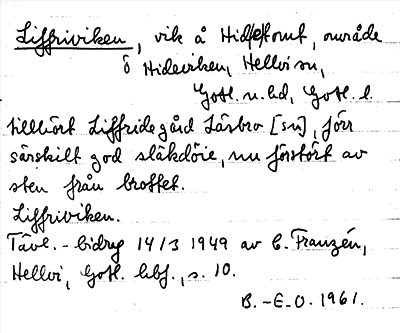 Liffriviken, vik å Hid(e)tomt, område
ö Hideviken, Hellvi sn,
Gotl. n. hd, Gotl. l.
tillhört Liffride gård Lärbro [sn], förr
särskilt god släkdöie, nu förstört av
sten från brottet.
Liffriviken.
Tävl.-bidrag 14/3 1949 av C. Franzén,
Hellvi, Gotl. hbf., s. 10.
B.-E.O. 1961.